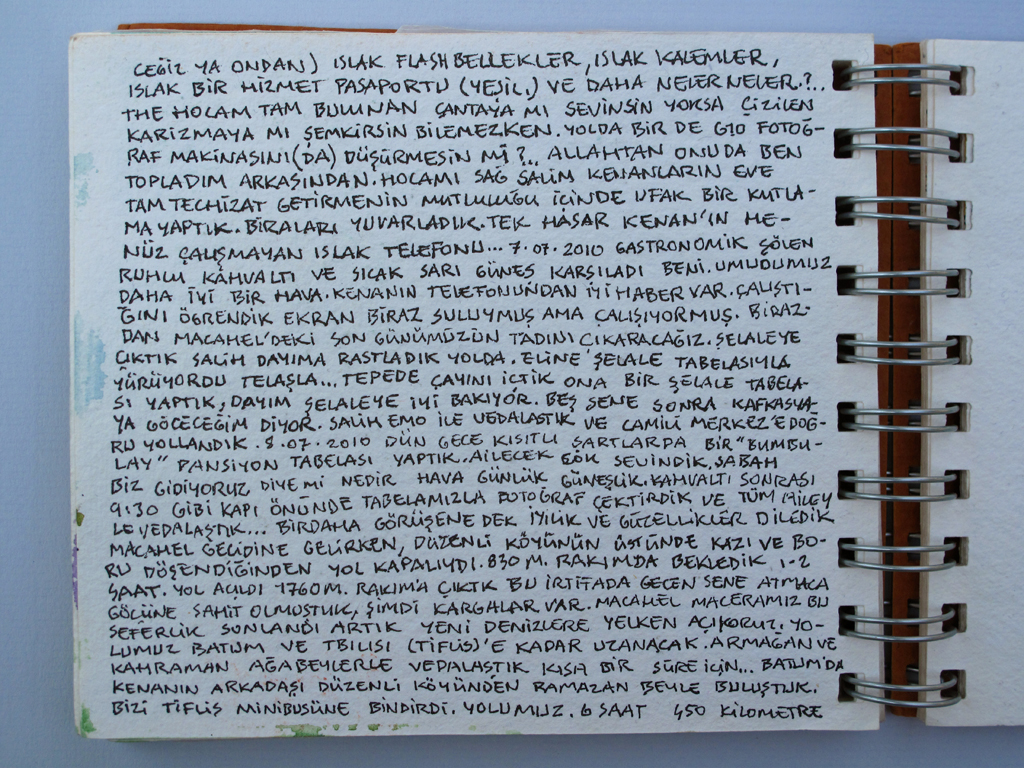 CEĞİZ YA ONDAN) ISLAK FLASHBELLEKLER, ISLAK KALEMLER,
ISLAK BİR HİZMET PASAPORTU (YEŞİL!) VE DAHA NELER NELER.?..
THE HOCAM TAM BULUNAN ÇANTAYA MI SEVİNSİN YOKSA ÇİZİLEN
KARİZMAYA MI ŞEMKİRSİN BİLEMEZKEN. YOLDA BİR DE G10 FOTOĞ-
RAF MAKİNASINI (DA) DÜŞÜRMESİN Mİ?... ALLAHTAN ONU DA BEN
TOPLADIM ARKASINDAN. HOCAMI SAĞ SALİM KENANLARIN EVE
TAM TECHİZAT GETİRMENİN MUTLULUĞU İÇİNDE UFAK BİR KUTLA-
MA YAPTIK. BİRALARI YUVARLADIK. TEK HASAR KENAN'IN HE-
NÜZ ÇALIŞMAYAN ISLAK TELEFONU... 7.07.2010 GASTRONOMİK ŞÖLEN
RUHLU KAHVALTI VE SICAK SARI GÜNEŞ KARŞILADI BENİ. UMUDUMUZ
DAHA İYİ BİR HAVA. KENANIN TELEFONUNDAN İYİ HABER VAR. ÇALIŞTI-
ĞINI ÖĞRENDİK EKRAN BİRAZ SULUYMUŞ AMA ÇALIŞIYORMUŞ. BİRAZ-
DAN MACAHEL'DEKİ SON GÜNÜMÜZÜN TADINI ÇIKARACAĞIZ. ŞELALEYE
ÇIKTIK SALİH DAYIMA RASTLADIK YOLDA. ELİNE ŞELALE TABELASIYLA
YÜRÜYORDU TELAŞLA... TEPEDE ÇAYINI İÇTİK ONA BİR ŞELALE TABELA-
SI YAPTIK, DAYIM ŞELALEYE İYİ BAKIYOR. BEŞ SENE SONRA KAFKASYA-
YA GÖÇECEĞİM DİYOR. SALİH EMO İLE VEDALAŞTIK VE CAMİLİ MERKEZ'E DOĞ-
RU YOLLANDIK. 8.07.2010 DÜN GECE KISITLI ŞARTLARDA BİR "BUMBU-
LAY" PANSİYON TABELASI YAPTIK. AİLECEK ÇOK SEVİNDİK. SABAH
BİZ GİDİYORUZ DİYE Mİ NEDİR HAVA GÜNLÜK GÜNEŞLİK. KAHVALTI SONRASI
9:30 GİBİ KAPI ÖNÜNDE TABELAMIZLA FOTOĞRAF ÇEKTİRDİK VE TÜM AİLEY
LE VEDALAŞTIK... BİRDAHA GÖRÜŞENE DEK İYİLİK VE GÜZELLİKLER DİLEDİK
MACAHEL GEÇİDİNE GELİRKEN, DÜZENLİ KÖYÜNÜN ÜSTÜNDE KAZI VE BO-
RU DÖŞENDİĞİNDEN YOL KAPALIYDI. 830 M. RAKIMDA BEKLEDİK 1-2
SAAT. YOL AÇILDI 1760M. RAKIM'A ÇIKTIK BU İRTİFADA GEÇEN SENE ATMACA
GÖÇÜNE ŞAHİT OLMUŞTUK, ŞİMDİ KARGALAR VAR. MACAHEL MACERAMIZ BU
SEFERLİK SONLANDI ARTIK YENİ DENİZLERE YELKEN AÇIYORUZ. YO-
LUMUZ BATUM VE TBILISI (TİFLİS)'E KADAR UZANACAK. ARMAĞAN VE
KAHRAMAN AĞABEYLERLE VEDALAŞTIK KISA BİR SÜRE İÇİN... BATUM'DA
KENANIN ARKADAŞI DÜZENLİ KÖYÜNDEN RAMAZAN BEYLE BULUŞTUK.
BİZİ TİFLİS MİNİBÜSÜNE BİNDİRDİ. YOLUMUZ. 6 SAAT 450 KİLOMETRE